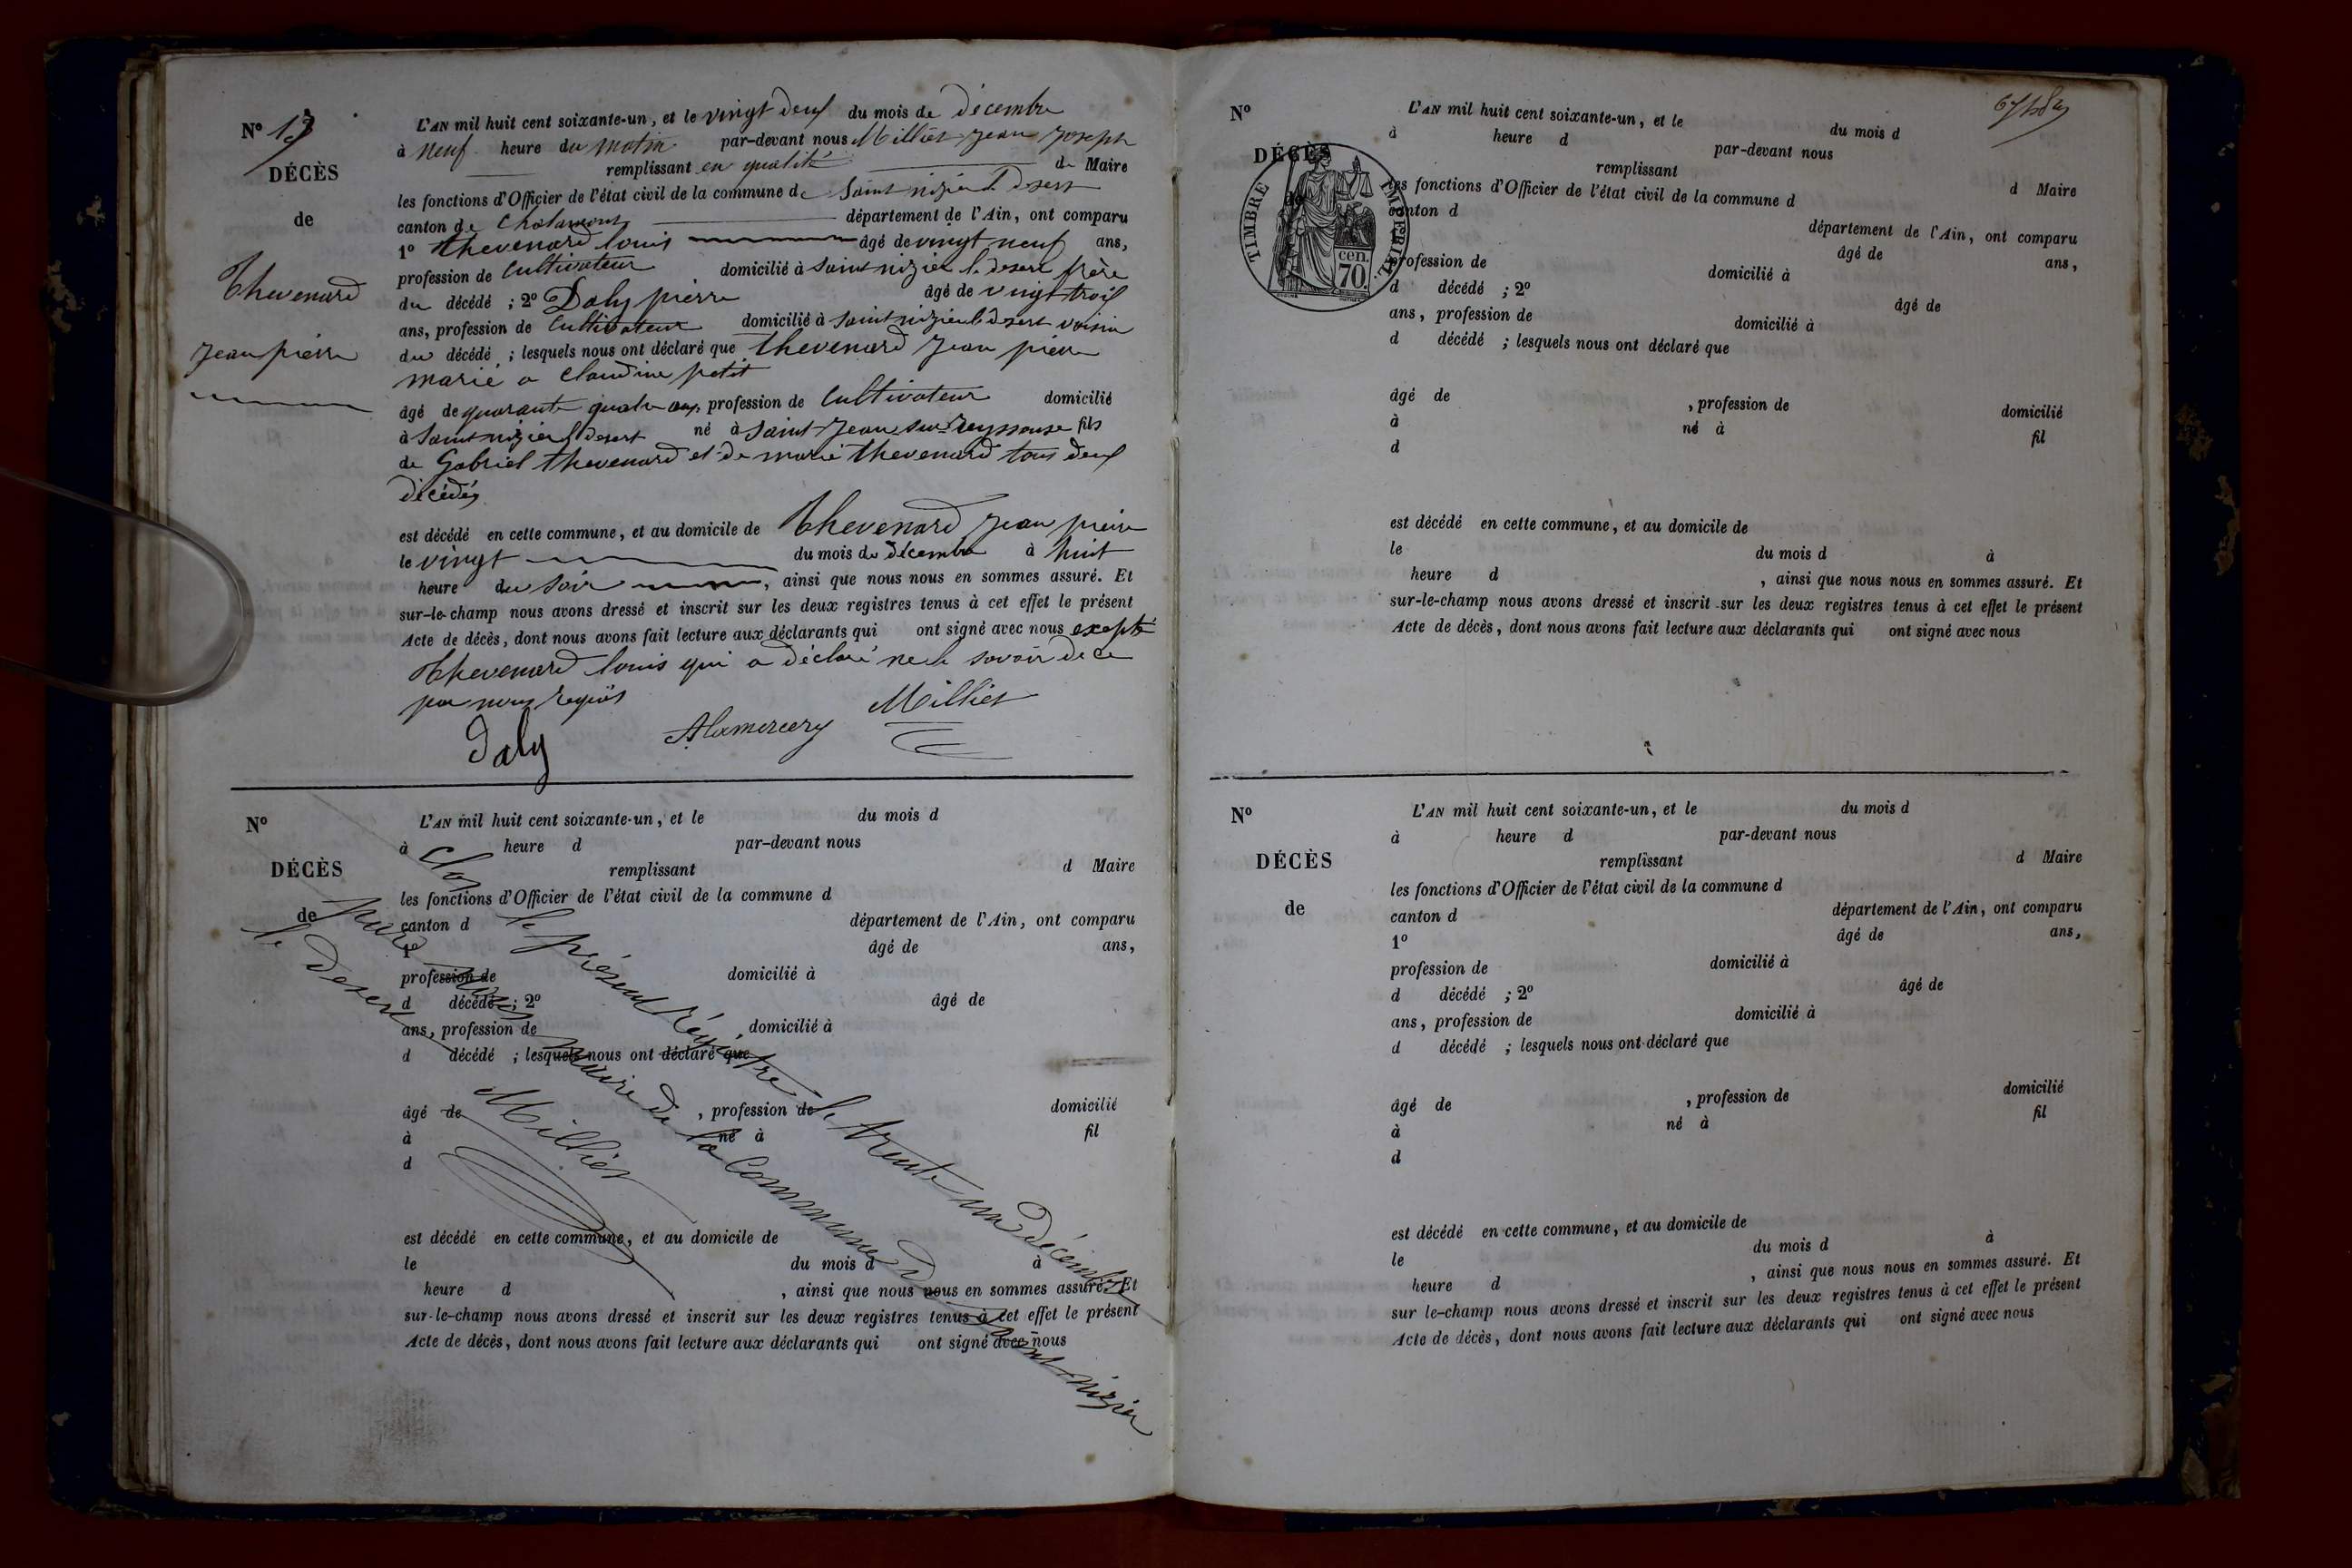 N° 17
DÉCÈS
de
Thevenard
Jean pierre
L'AN mil huit cent soixante-un, et le vingt deux du mois de décembre
à neuf heure du matin par-devant nous Milliet Jean Joseph
remplissant en qualité de Maire
les fonctions d'Officier de l'état civil de la commune de Saint nizier l. Desert
canton de Chalamont département de l'Ain, ont comparu
1° thevenard louis âgé de vingt neuf ans,
profession de Cultivateur domicilié à saint nizier le desert frère
du décédé ; 2° Daly pierre âgé de vingt trois
ans, profession de Cultivateur domicilié à saint nizier le desert voisin
du décédé ; lesquels nous ont déclaré que thevenard Jean pierre
marié a claudine petit
âgé de quarante quatre ans, profession de Cultivateur domicilié
à saint nizier l desert né à Saint-Jean sur Reyssouse fils
de Gabriel thevenard et de marie thevenard tous deux
décédés
est décédé en cette commune, et au domicile de Thevenard Jean pierre
le vingt du mois de décembre à huit
heure du soir , ainsi que nous nous en sommes assuré. Et
sur-le-champ nous avons dressé et inscrit sur les deux registres tenus à cet effet le présent
Acte de décès, dont nous avons fait lecture aux déclarants qui ont signé avec nous excepté
Thevenard louis qui a déclaré ne le savoir de ce
par nous requis
Daly Alamercery Milliet
N°
DÉCÈS
de
L'AN mil huit cent soixante-un, et le du mois d
à heure d par-devant nous
remplissant d Maire
les fonctions d'Officier de l'état civil de la commune d
canton d département de l'Ain, ont comparu
1° âgé de ans,
profession de domicilié à
d décédé ; 2° âgé de
ans, profession de domicilié à
d décédé ; lesquels nous ont déclaré que
âgé de , profession de domicilié
à né à fil
d
est décédé en cette commune, et au domicile de
le du mois d à
heure d , ainsi que nous nous en sommes assuré. Et
sur-le-champ nous avons dressé et inscrit sur les deux registres tenus à cet effet le présent
Acte de décès, dont nous avons fait lecture aux déclarants qui ont signé avec nous
Clos le présent Régistre le trente un décembre
par nous maire de la Commune de Saint nizier
le Desert
Milliet
N°
DÉCÈS
TIMBRE IMPÉRIAL
cen.
70.
L'AN mil huit cent soixante-un, et le du mois d
à heure d par-devant nous
remplissant d Maire
les fonctions d'Officier de l'état civil de la commune d
canton d département de l'Ain, ont comparu
âgé de ans,
profession de domicilié à
d décédé ; 2° âgé de
ans, profession de domicilié à
d décédé ; lesquels nous ont déclaré que
âgé de , profession de domicilié
à né à fil
d
est décédé en cette commune, et au domicile de
le du mois d à
heure d , ainsi que nous nous en sommes assuré. Et
sur-le-champ nous avons dressé et inscrit sur les deux registres tenus à cet effet le présent
Acte de décès, dont nous avons fait lecture aux déclarants qui ont signé avec nous
N°
DÉCÈS
de
L'AN mil huit cent soixante-un, et le du mois d
à heure d par-devant nous
remplissant d Maire
les fonctions d'Officier de l'état civil de la commune d
canton d département de l'Ain, ont comparu
1° âgé de ans,
profession de domicilié à
d décédé ; 2° âgé de
ans, profession de domicilié à
d décédé ; lesquels nous ont déclaré que
âgé de , profession de domicilié
à né à fil
d
est décédé en cette commune, et au domicile de
le du mois d à
heure d , ainsi que nous nous en sommes assuré. Et
sur le-champ nous avons dressé et inscrit sur les deux registres tenus à cet effet le présent
Acte de décès, dont nous avons fait lecture aux déclarants qui ont signé avec nous